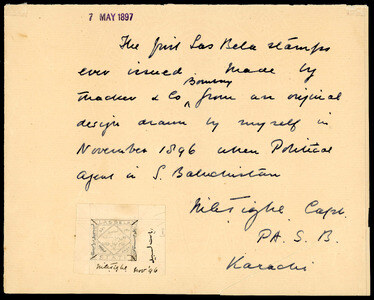 7 MAY 1897
The first Las Bela stamps
ever issued made by
Thacker & Co Bombay from an original
design drawn by myself in
November 1896 when Political
Agent in S. Baluchistan
M Tighe Capt.
P.A. S. B.
Karachi
Tighe Nov 96